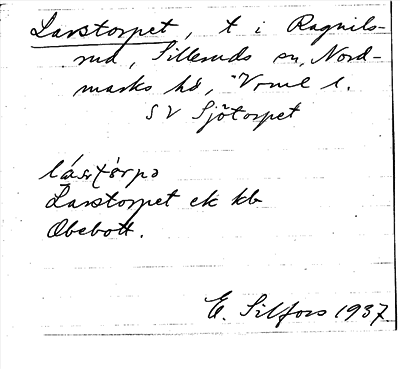 Larstorpet, t i Ragnils-
rud, Silleruds sn, Nord-
marks hd, Vrml l.
SV Sjötorpet
Larstorpet ek kb
Obebott.
E. Silfors 1937